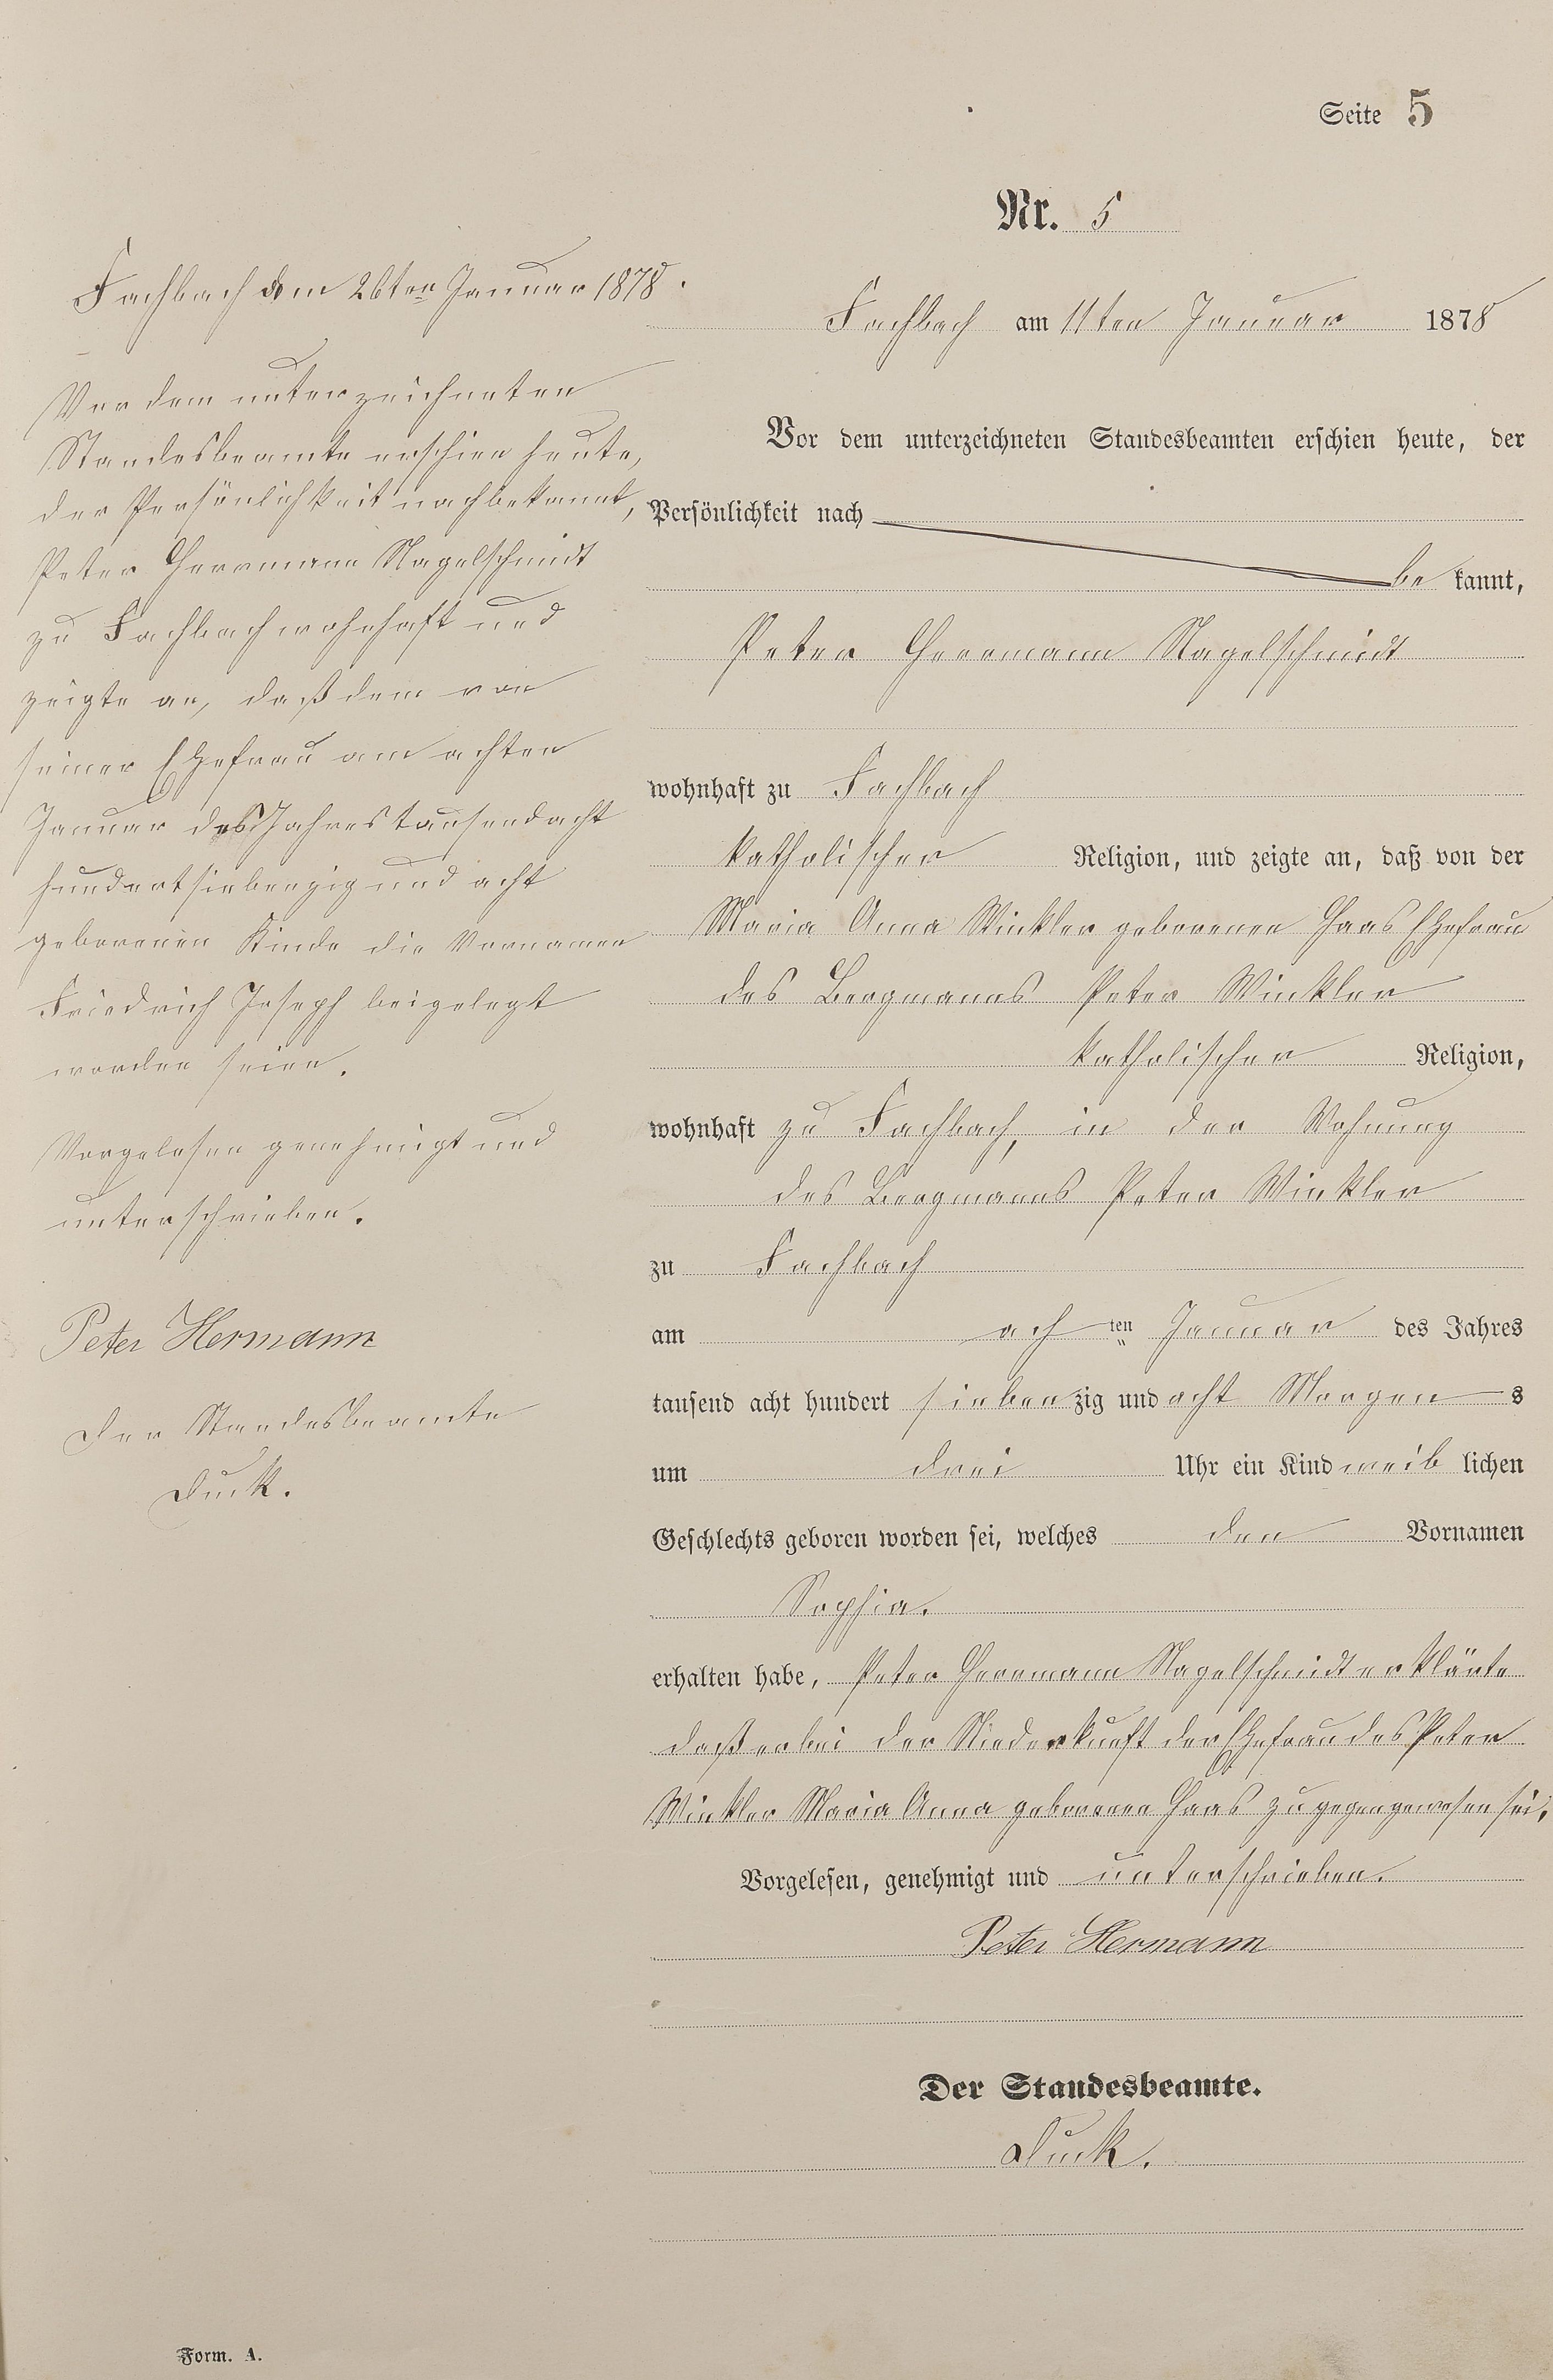 Seite 5
Nr. 5
Fachbach am 11ten Januar 1878
Vor dem unterzeichneten Standesbeamten erschien heute, der
Persönlichkeit nach
be kannt,
Peter Herrmann Nagelschmidt
wohnhaft zu Fachbach
katholischer Religion, und zeigte an, daß von der
Maria Anna Winkler geborenen Haas Ehefrau
des Bergmanns Peter Winkler
katholischer Religion,
wohnhaft zu Fachbach, in der Wohnung
des Bergmanns Peter Winkler
zu Fachbach
am ach ten Januar des Jahres
tausend acht hundert sieben zig und acht Morgen s
um drei Uhr ein Kind weib lichen
Geschlechts geboren worden sei, welches den Vornamen
Sophia.
erhalten habe, Peter Herrmann Nagelschmidt erklärte
daß er bei der Niederkunft der Ehefrau des Peter
Winkler Maria Anna geborenen Haas zugegen gewesen sei,
Vorgelesen, genehmigt und unterschrieben.
Peter Hermann
Der Standesbeamte.
Duck.
Fachbach dem 26ten Januar 1878.
Vor dem unterzeichneten
Standesbeamte erschien heute,
der Persönlichkeit nach bekannt,
Peter Herrmann Nagelschmidt
zu Fachbach wohnhaft und
zeigte an, daß dem von
seiner Ehefrau am achten
Januar des Jahres tausend acht
hundert siebenzig und acht
geborenen Kinde die Vornamen
Friedrich Joseph beigelegt
worden seien.
Vorgelesen genehmigt und
unterschrieben.
Peter Hermann
Der Standesbeamte
Duck.
Form. A.